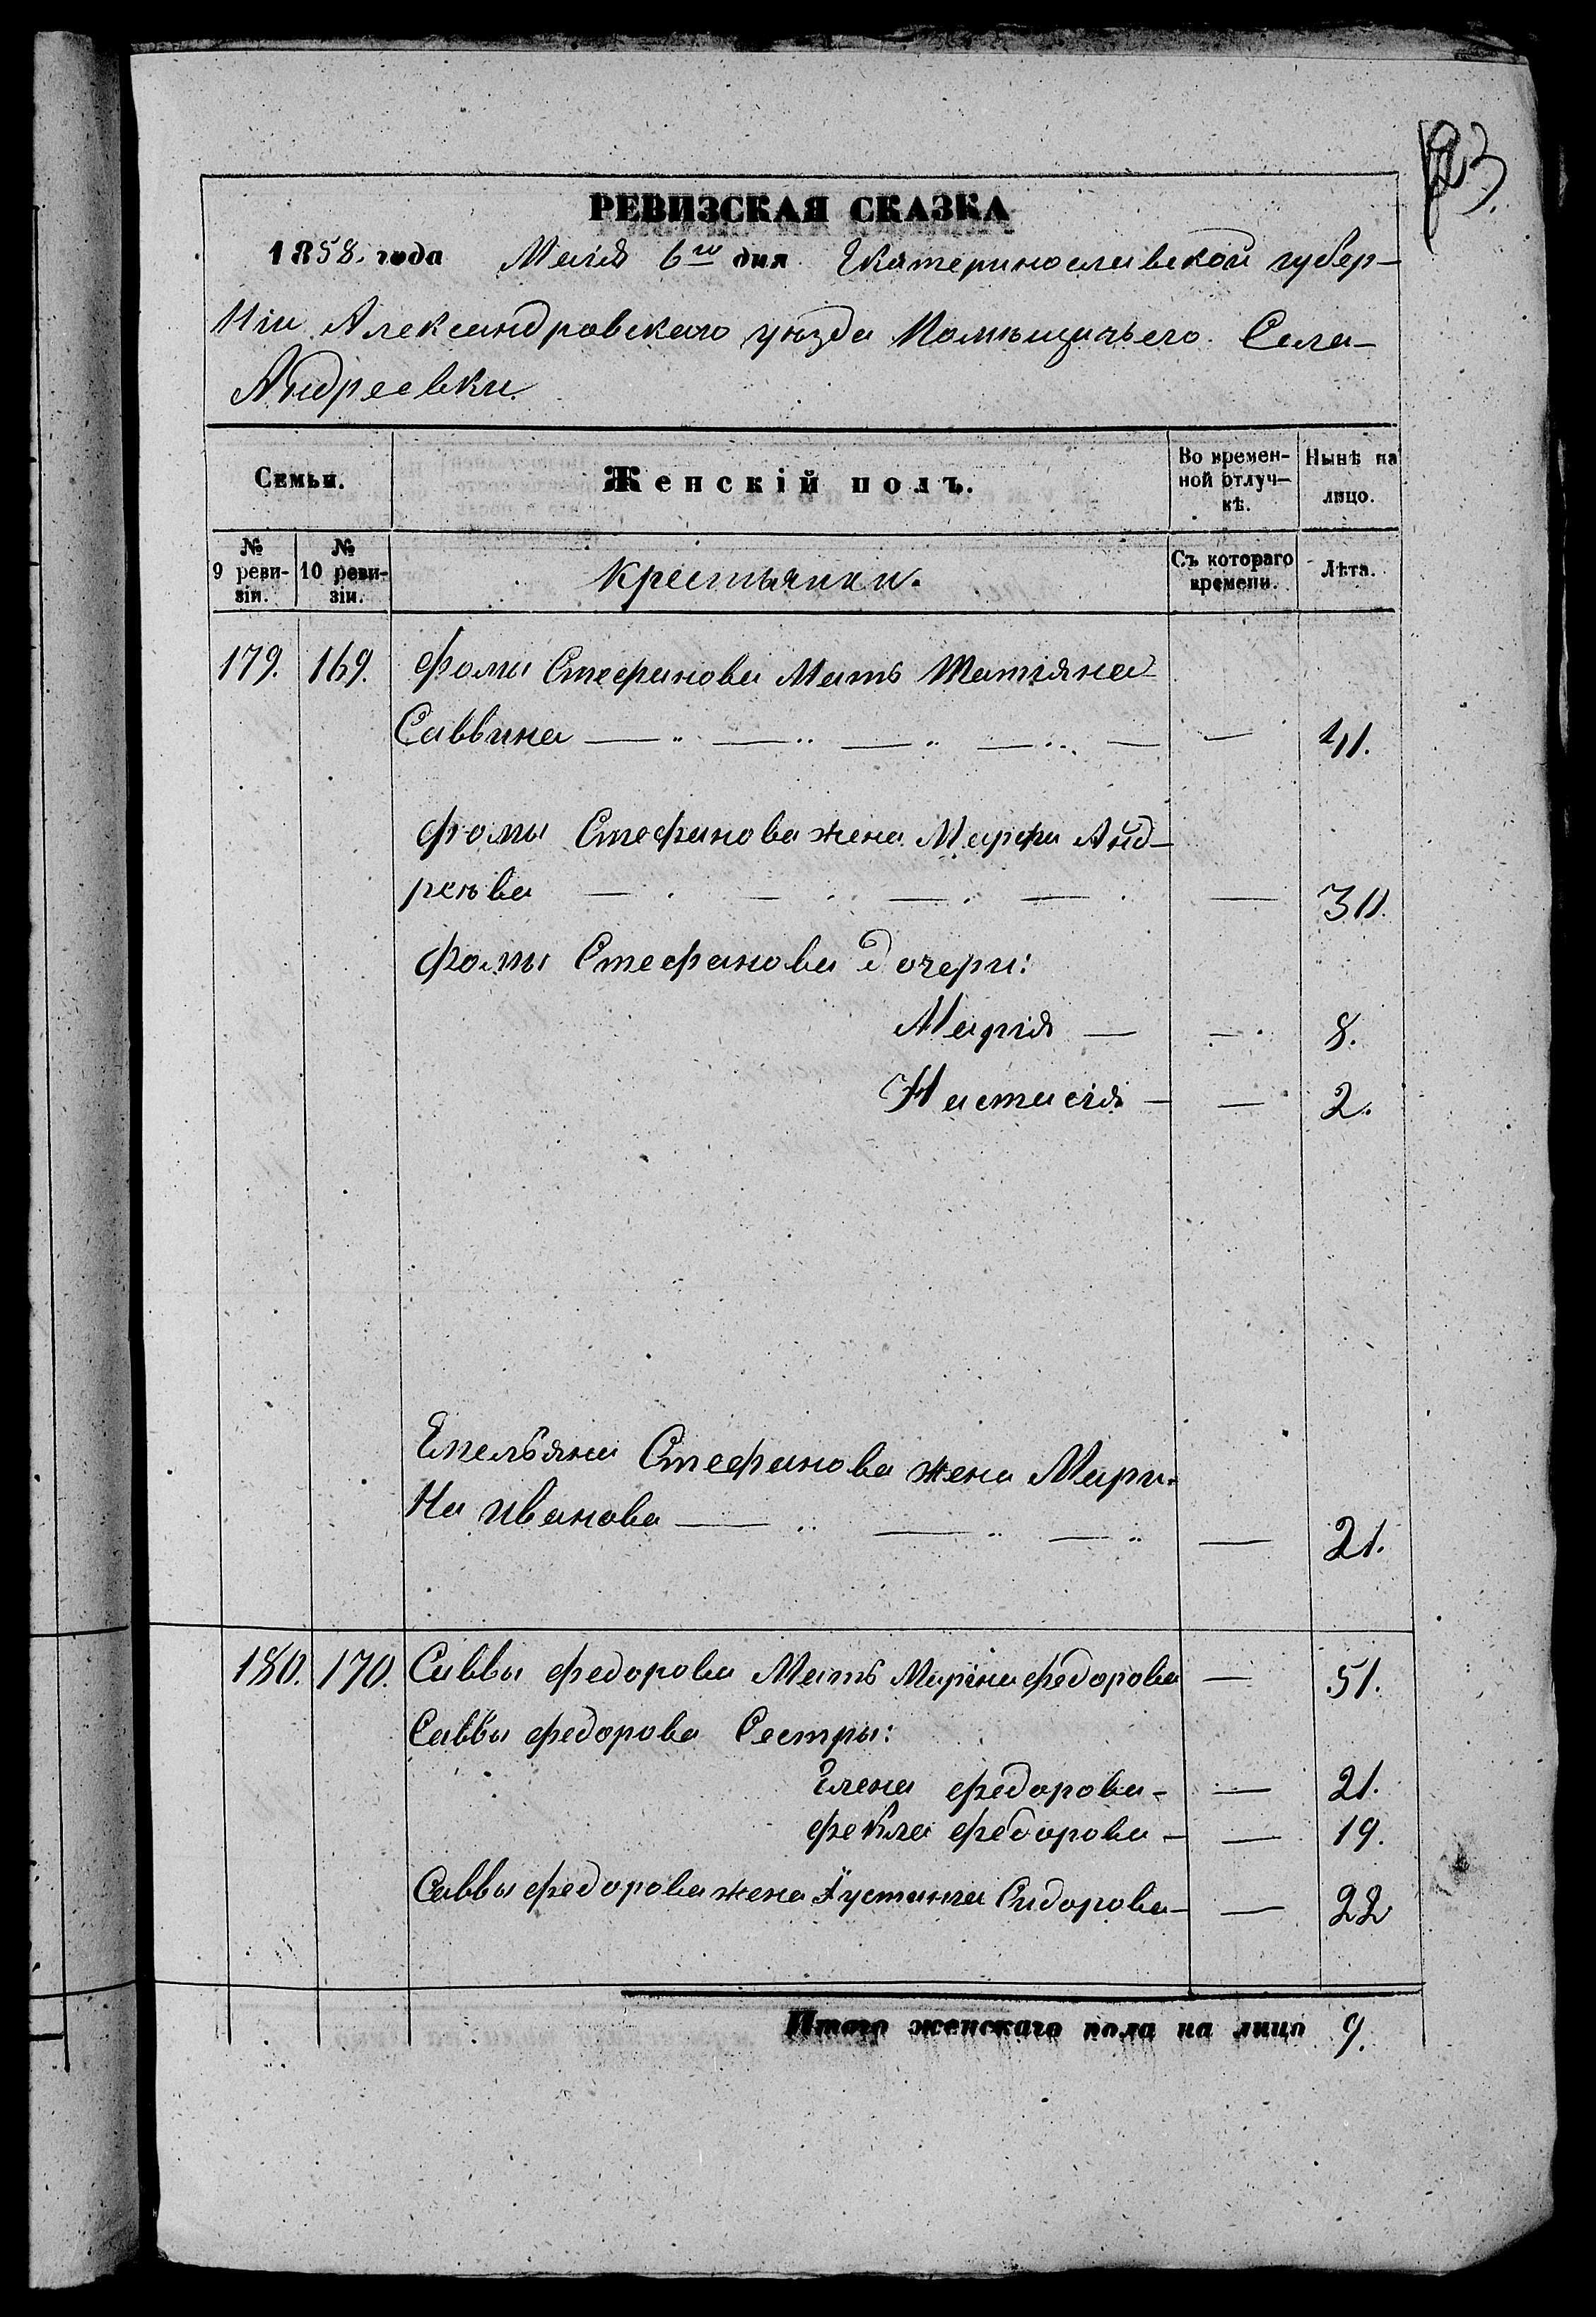 РЕВИЗСКАЯ СКАЗКА
1858. года Маія 6го дня Екатеринославской губер-
ніи Александровскаго уѣзда Помѣщичьего Села
Андреевки.
Семьи. Женскій полъ. Во времен-ной отлуч-кѣ. Нынѣ на лицо.
№ 9 реви-зіи. № 10 реви-зіи. Крестьянки. Съ котораго времени. Лѣта.
179. 169. Фомы Стефанова Мать Татіяна
Саввина — — 41.
Фомы Стефанова жена Марфа Анд-
реѣва — — 30.
Фомы Стефанова дочери:
Марія — — 8.
Настасія — — 2.
Емельяна Стефанова жена Мари-
на Иванова — — 21.
180. 170. Саввы Федорова Мать Марина Федорова — 51.
Саввы Федорова Сестры:
Елена Федорова — — 21.
Фекла Федорова — — 19.
Саввы Федорова жена Іустинья Сидорова — — 22
Итого женскаго пола на лицо 9.